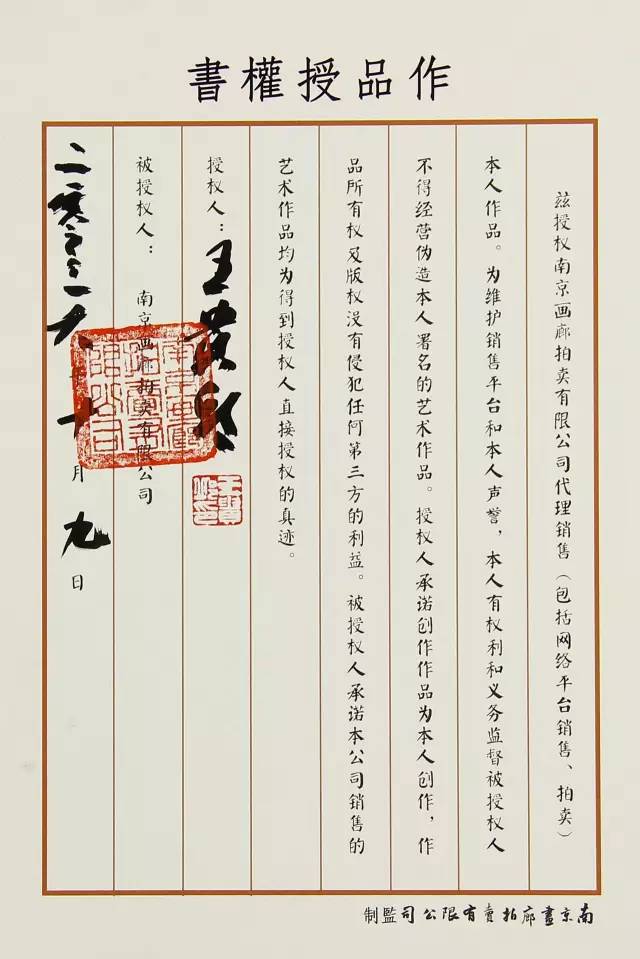 作品授權書
兹授权南京画廊拍卖有限公司代理销售（包括网络平台销售、拍卖）
本人作品。为维护销售平台和本人声誉，本人有权利和义务监督被授权人
不得经营伪造本人署名的艺术作品。授权人承诺创作作品为本人创作，作
品所有权及版权没有侵犯任何第三方的利益。被授权人承诺本公司销售的
艺术作品均为得到授权人直接授权的真迹。
授权人：王
被授权人：南京画廊拍卖有限公司
月九日
南京畫廊拍賣有限公司監制